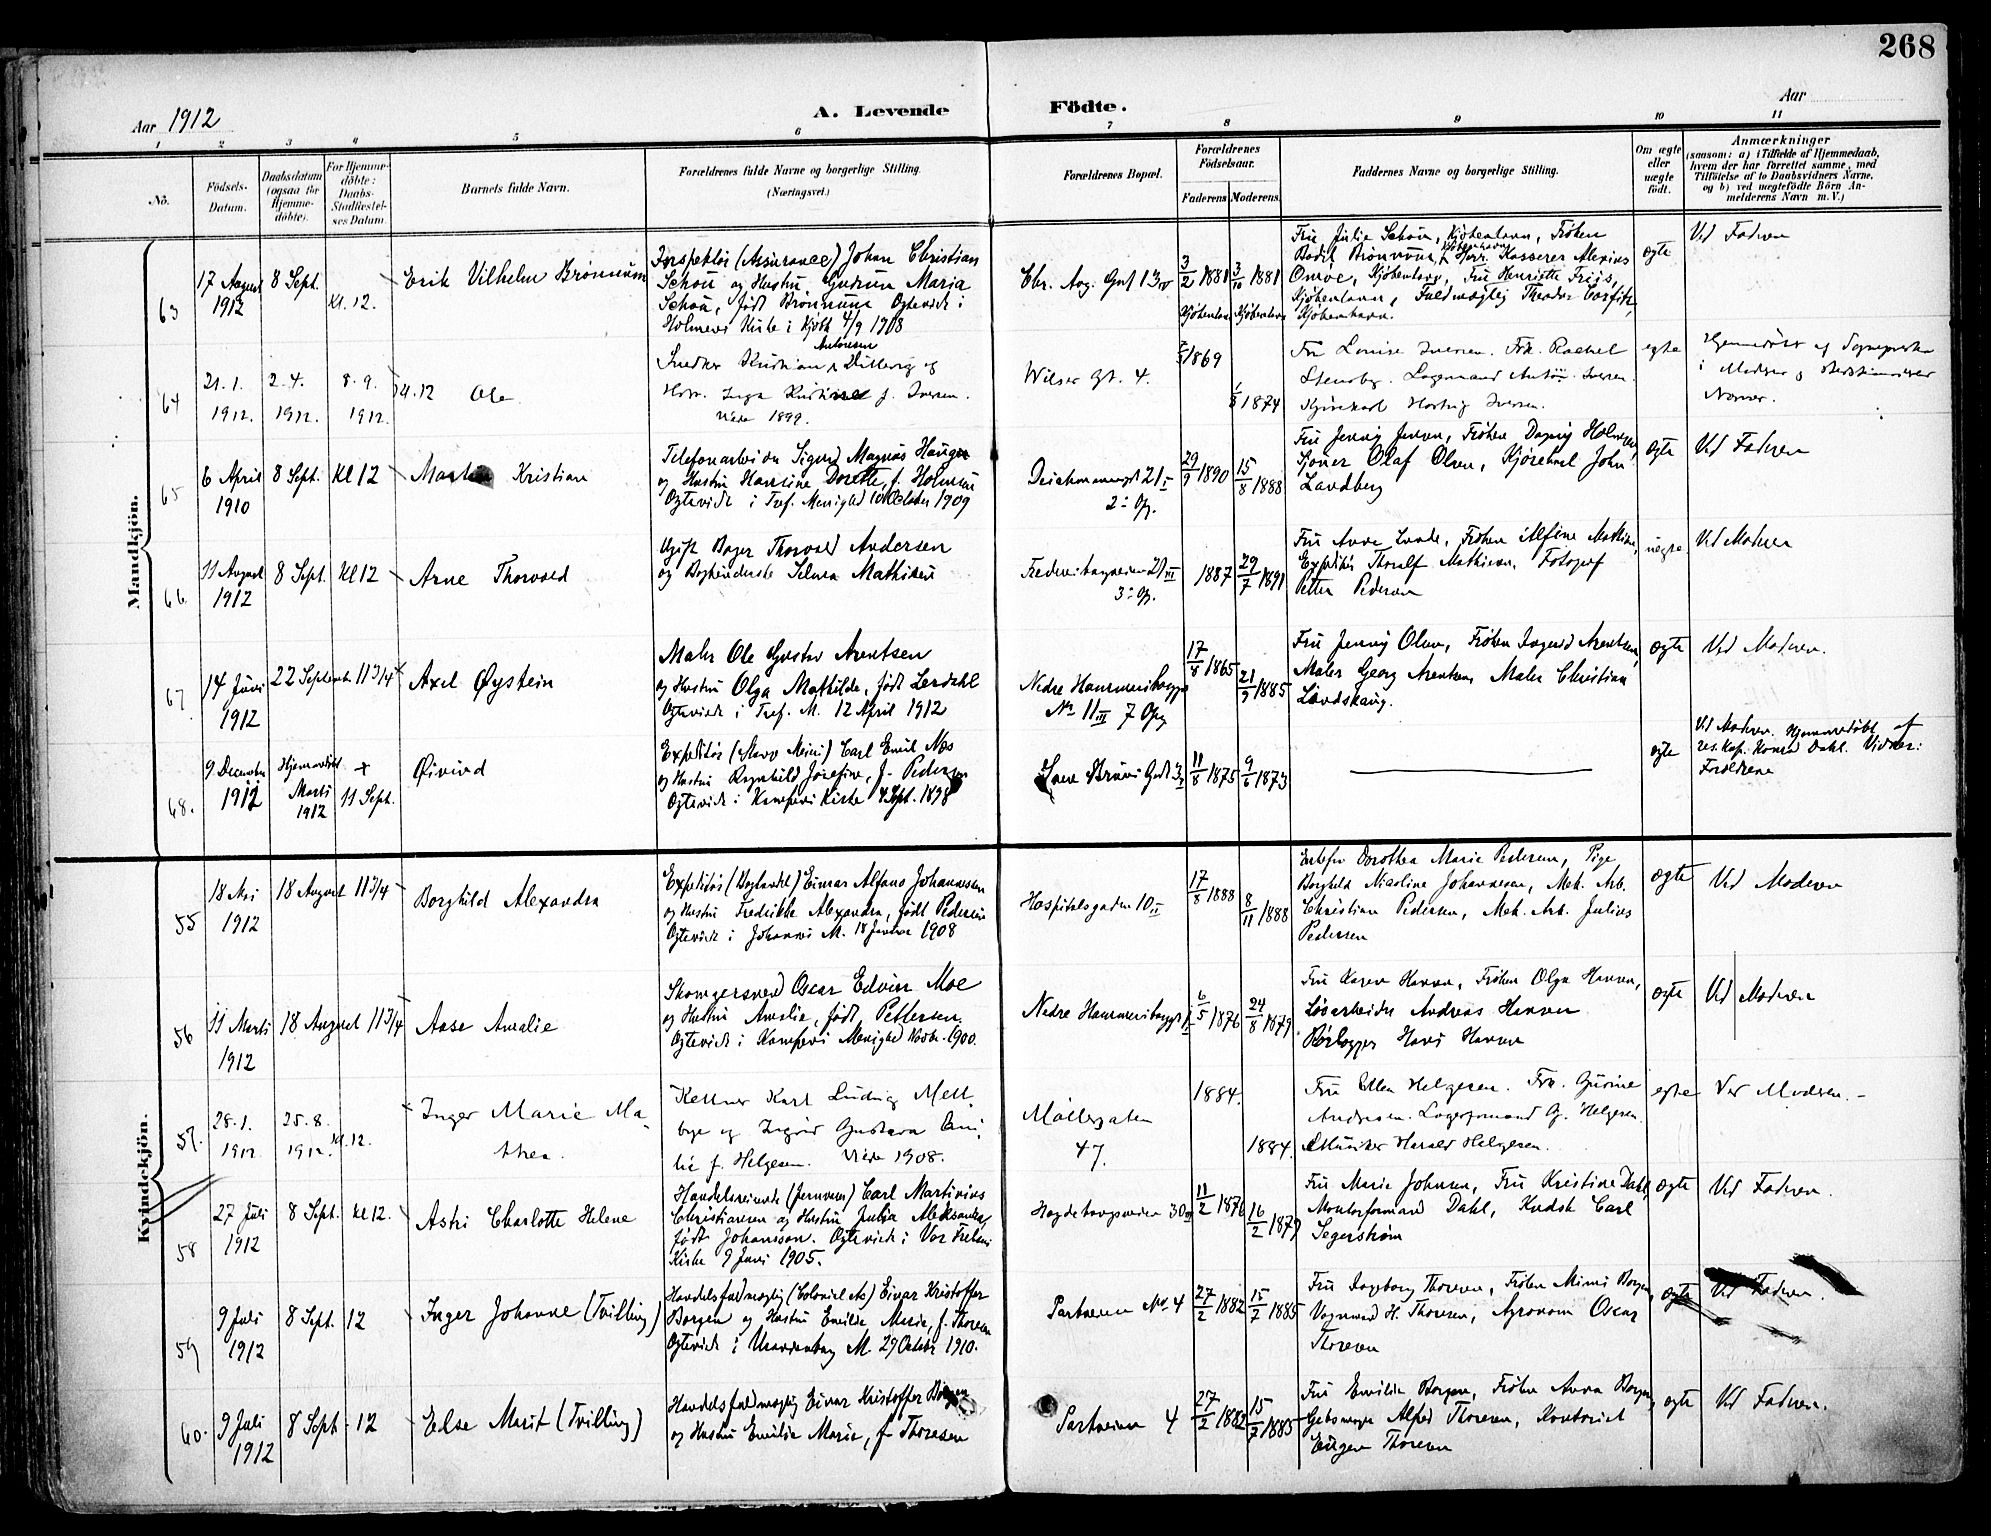 268
Aar 1912
A. Levende Födte.
Aar
1 2 3 4 5 6 7 8 9 10 11
No.
Födsels-Datum.
Daabsdatum (ogsaa for Hjemme-døbte).
For Hjemme-döbte: Daabs-Stadfæstelses Datum
Barnets fulde Navn.
Forældrenes fulde Navne og borgerlige Stilling. (Næringsvei.)
Forældrenes Bopæl.
Forældrenes Födselsaar.
Faderens Moderens
Faddernes Navne og borgerlige Stilling.
Om ægte eller uægte födt.
Anmærkninger
(saasom: a) i Tilfælde af Hjemmedaab, hvem der har forrettet samme, med Tilföielse af to Daabsvidners Navne, og b) ved uægtefödte Börn Anmelderens Navn m. V.)
Mandkjön.
63
17 August 1912
8 Sept.
Kl. 12.
Erik Vilhelm Brönnum
Inspektör (Assurance) Johan Christian
Schou og Hustru Gudrun Maria
Schou, født Brönnum Egteviede i
Holmens Kirke i Kjøbh 4/9 1908
Chr. Aug. Gt 13 IV
3/2 1881
3/10 1881
Kjøbenhavn Kjøbenhavn
Fru Julie Schou, Kjøbenhavn, Frøken
Bodil Brønnum, Kjøbenhavn Herr Kasserer Alexius
Kjøbenhavn, Fru Henriette Friis,
Kjøbenhavn, Fuldmægtig Theodor
Kjøbenhavn.
ægte
Ved Faderen
64
21.1. 1912.
2.4. 1912.
8.9. 1912.
Kl. 12
Ole
Snedker Kristian Antonsen og
Hstr. Inga Kristine f. Iversen.
Viede 1899.
Wilses Gt. 4.
1869
1874
Fru Louise Iversen. Frk. Rachel
Stensby. Lagermand Anton Iversen.
Kjørekarl Hartvig Iversen.
egte
Hjemmedøbt af Sogneprest
i Moderens
65
6 April 1910
8 Sept.
Kl 12
Kristian
Telefonarbeider Sigurd Magnus Haugen
og Hustru Hansine Dorette, f.
Egteviede i Tref. Menighed 10 October 1909
Deichmannsgt 21 I
2 Opg.
29/9 1890
15/8 1888
Fru Jenny Jensen, Frøken Dagny
Olaf Olsen, Kjørekarl John
Landberg
ægte
Ved Faderen
66
11 August 1912
8 Sept.
Kl 12
Arne Thorvald
Ugift Bager Thorvald Andersen
og Selma Mathisen
Frederiksborgveien 21 III
3 Opg.
1887
29/7 1891
Fru Anna Lunde, Frøken Alfine Mathisen,
Expeditør Thorulf Mathisen, Fotograf
Petter Pedersen
uegte
Ved Moderen
67
14 Juni 1912
22 September
11 3/4
Axel Øystein
Maler Ole Gustav Arentsen
og Hustru Olga Mathilde, født Lerdahl
Egteviede i Tref. M. 12 April 1912
Nedre Hammersborggt
No 11 III 7 Opg
17/8 1865
21/9 1885
Fru Jenny Olsen, Frøken Dagny Arentsen,
Maler Georg Arentsen, Maler Christian
Landskaug.
ægte
Ved Moderen.
68.
9 December 1912
Hjemmedøbt Marts 1912
+ 11 Sept.
Øivind
Expeditør Carl Emil Næs
og Hustru Ragnhild Josefine, f. Pedersen
Egteviede i Kampens Kirke 4 Sept. 1898
11/8 1875
9/6 1873
ægte
Ved Moderen. Hjemmedøbt af
res. Kap. Konrad Dahl. Vidner:
Forældrene
Kvindekjön.
55
18 Mai 1912
18 August
11 3/4
Borghild Alexandra
Expeditør (Boghandel) Einar Alfons Johannesen
og Hustru Fredrikke Alexandra, født Pedersen
Egteviede i Johannes M. 18 Januar 1908
Hospitalsgaden 10 II
17/8 1888
8/11 1888
Enkefru Dorothea Marie Pedersen, Pige
Borghild Nicoline Johannesen, Mek. Arb.
Christian Pedersen, Mek. Arb. Julius
Pedersen
ægte
Ved Moderen
56
11 Marts 1912
18 August
11 3/4
Aase Amalie
Skomagersvend Oscar Edvin Moe
og Hustru Amalie, født Pettersen
Egteviede i Kampens Menighed Novbr. 1900.
Nedre Hammersborggt
6/5 1876
24/8 1879
Fru Karen Hansen, Frøken Olga Hansen,
Løsarbeider Andreas Hansen
Rørlægger Hans Hansen
ægte
Ved Moderen
57.
28.1. 1912
25.8. 1912.
Kl. 12.
Inger Marie Mathea.
Kelner Karl Ludvig Mellbye og Ingrid Gustava Emilie f. Helgesen. Viede 1908.
Møllergaten
47.
1884.
1884.
Fru Ellen Helgesen. Frk. Gurine
Andresen. Lagerformand G. Helgesen.
Musiker Harald Helgesen.
egte
Ved Moderen.
58
27 Juli 1912
8 Sept.
Kl 12.
Astri Charlotte Helene
Handelsreisende (Jernvarer) Carl Martinius
Christiansen og Hustru Julia Aleksandra,
født Johansson. Egteviede i Vor Frelsers
Kirke 9 Juni 1905.
Hegdehaugsveien 30 III
11/2 1876
16/2 1879
Fru Marie Johnsen, Fru Kristine Dahl,
Montørformand Dahl, Kudsk Carl
Segerstrøm
ægte
Ved Faderen.
59
9 Juli 1912
8 Sept.
12
Inger Johanne (Tvilling)
Handelsfuldmægtig (Colonial etc) Einar Kristoffer
Borgen og Hustru Emilie Marie, f. Thoresen
Egteviede i Uranienborg M. 29 October 1910.
Parkveien No. 4
27/2 1882
15/7 1885
Fru Dagborg Thoresen, Frøken Mimi Borgen,
Vognmand H. Thoresen, Agronom Oscar
Thoresen
ægte
Ved Faderen.
60.
9 Juli 1912
8 Sept.
12
Else Marit (Tvilling)
Handelsfuldmægtig Einar Kristoffer Borgen
og Hustru Emilie Marie, f. Thoresen
Parkveien 4
27/2 1882
15/7 1885
Fru Emilie Borgen, Frøken Anna Borgen,
Alfred Thoresen, Kontorist
Eugen Thoresen
ægte
Ved Faderen.